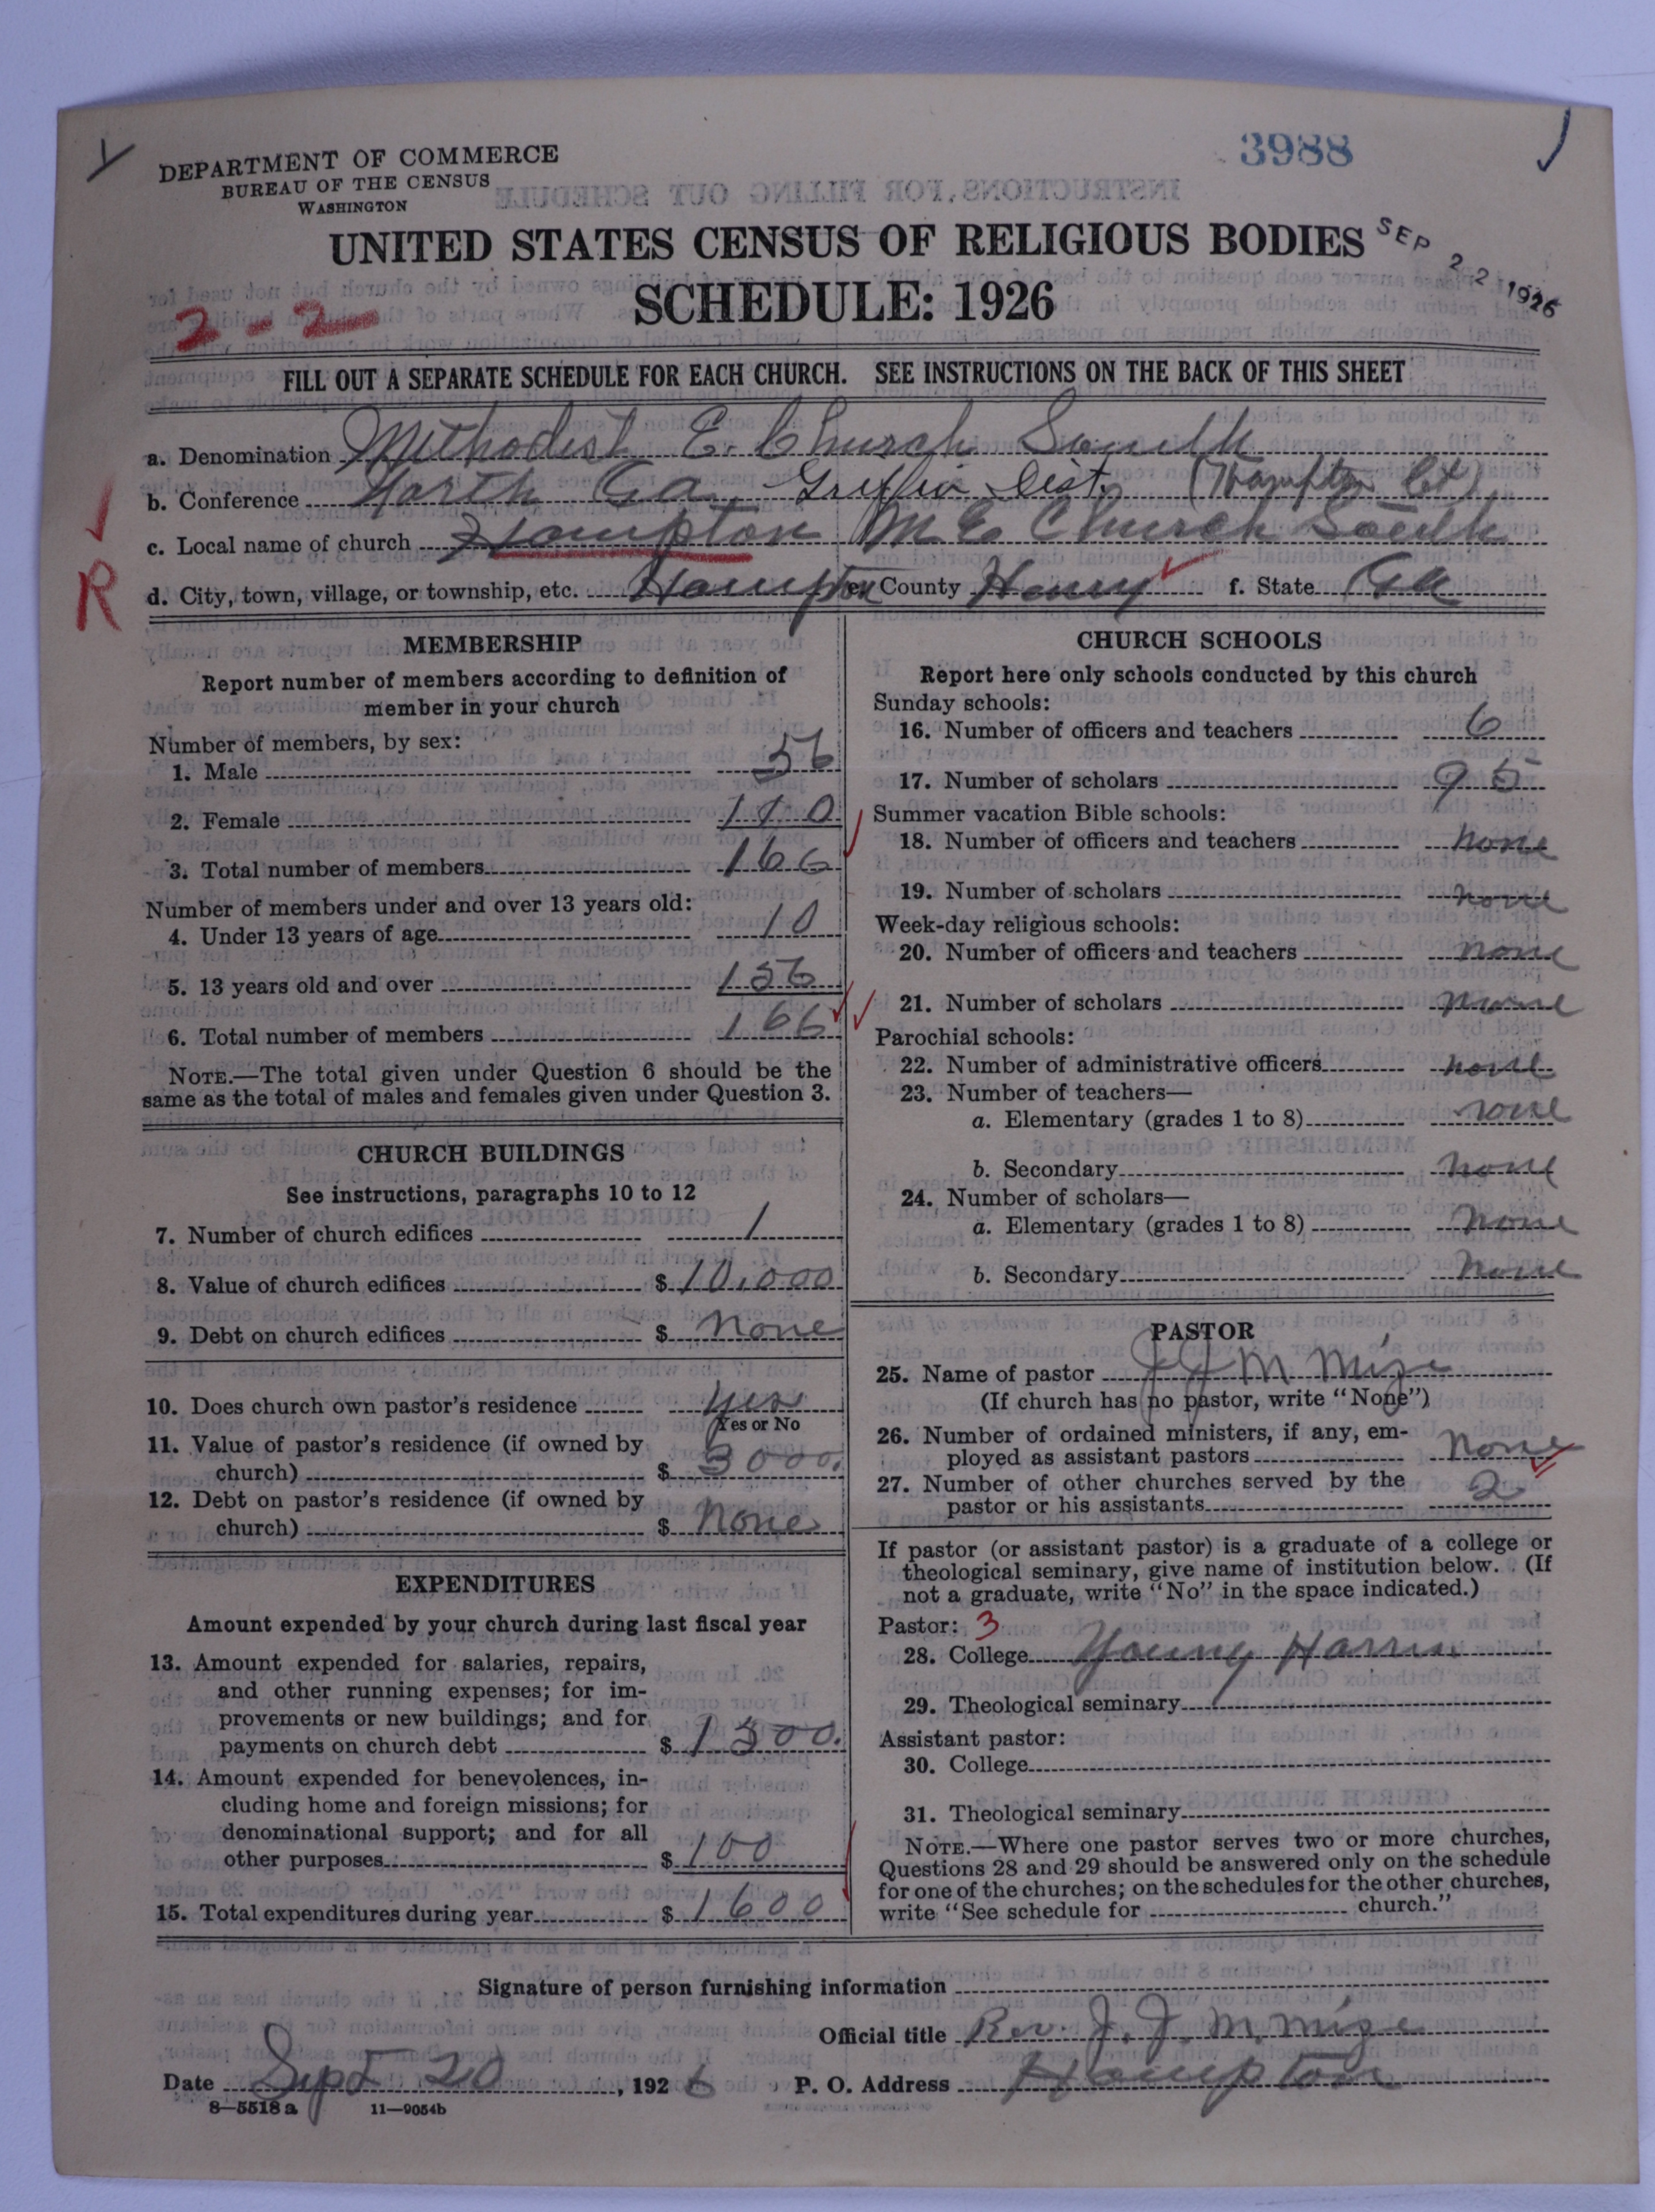 3988
DEPARTMENT OF COMMERCE
BUREAU OF THE CENSUS
WASHINGTON
UNITED STATES CENSUS OF RELIGIOUS BODIES
SEP 22 1926
SCHEDULE: 1926
2-2
FILL OUT A SEPARATE SCHEDULE FOR EACH CHURCH. SEE INSTRUCTIONS ON THE BACK OF THIS SHEET
a. Denomination Methodist E. Church South
b. Conference North Ga. Griffin Dist. (Hampton Ct)
c. Local name of church Hampton M E Church South
R
d. City, town, village, or township, etc. Hampton e. County Henry f. State Ga
MEMBERSHIP
Report number of members according to definition of
member in your church
Number of members, by sex:
1. Male 56
2. Female 110
3. Total number of members 166
Number of members under and over 13 years old:
4. Under 13 years of age 10
5. 13 years old and over 156
6. Total number of members 166
NOTE.—The total given under Question 6 should be the
same as the total of males and females given under Question 3.
CHURCH BUILDINGS
See instructions, paragraphs 10 to 12
7. Number of church edifices 1
8. Value of church edifices $ 10,000
9. Debt on church edifices $ none
10. Does church own pastor's residence yes
Yes or No
11. Value of pastor's residence (if owned by
church) $ 3000.
12. Debt on pastor's residence (if owned by
church) $ none
EXPENDITURES
Amount expended by your church during last fiscal year
13. Amount expended for salaries, repairs,
and other running expenses; for im-
provements or new buildings; and for
payments on church debt $ 1500.
14. Amount expended for benevolences, in-
cluding home and foreign missions; for
denominational support; and for all
other purposes $ 100
15. Total expenditures during year $ 1600
CHURCH SCHOOLS
Report here only schools conducted by this church
Sunday schools:
16. Number of officers and teachers 6
17. Number of scholars 95
Summer vacation Bible schools:
18. Number of officers and teachers none
19. Number of scholars none
Week-day religious schools:
20. Number of officers and teachers none
21. Number of scholars none
Parochial schools:
22. Number of administrative officers none
23. Number of teachers—
a. Elementary (grades 1 to 8) none
b. Secondary none
24. Number of scholars—
a. Elementary (grades 1 to 8) none
b. Secondary none
PASTOR
25. Name of pastor J J M Mize
(If church has no pastor, write "None")
26. Number of ordained ministers, if any, em-
ployed as assistant pastors none
27. Number of other churches served by the
pastor or his assistants 2
If pastor (or assistant pastor) is a graduate of a college or
theological seminary, give name of institution below. (If
not a graduate, write "No" in the space indicated.)
Pastor: 3
28. College Young Harris
29. Theological seminary
Assistant pastor:
30. College
31. Theological seminary
NOTE.—Where one pastor serves two or more churches,
Questions 28 and 29 should be answered only on the schedule
for one of the churches; on the schedules for the other churches,
write "See schedule for church."
Signature of person furnishing information
Official title Rev. J. J. M. Mize
Date Sept 20, 1926 P. O. Address Hampton
8—5518 a 11—9054b